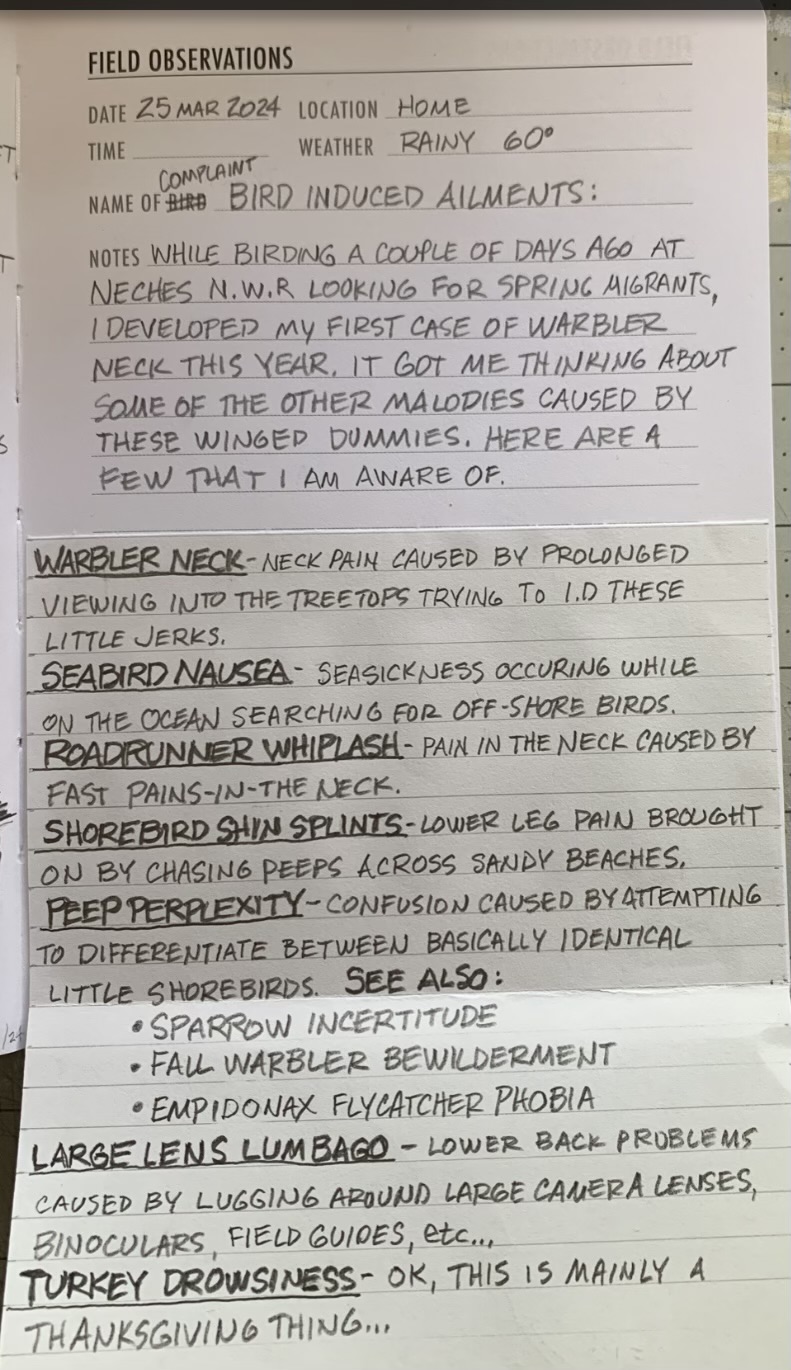 FIELD OBSERVATIONS
DATE 25 MAR 2024 LOCATION HOME
TIME WEATHER RAINY 60°
COMPLAINT
NAME OF BIRD BIRD INDUCED AILMENTS:
NOTES WHILE BIRDING A COUPLE OF DAYS AGO AT
NECHES N.W.R LOOKING FOR SPRING MIGRANTS,
I DEVELOPED MY FIRST CASE OF WARBLER
NECK THIS YEAR. IT GOT ME THINKING ABOUT
SOME OF THE OTHER MALODIES CAUSED BY
THESE WINGED DUMMIES. HERE ARE A
FEW THAT I AM AWARE OF.
WARBLER NECK - NECK PAIN CAUSED BY PROLONGED
VIEWING INTO THE TREETOPS TRYING TO I.D THESE
LITTLE JERKS.
SEABIRD NAUSEA - SEASICKNESS OCCURING WHILE
ON THE OCEAN SEARCHING FOR OFF-SHORE BIRDS.
ROADRUNNER WHIPLASH - PAIN IN THE NECK CAUSED BY
FAST PAINS-IN-THE NECK.
SHOREBIRD SHIN SPLINTS - LOWER LEG PAIN BROUGHT
ON BY CHASING PEEPS ACROSS SANDY BEACHES.
PEEP PERPLEXITY - CONFUSION CAUSED BY ATTEMPTING
TO DIFFERENTIATE BETWEEN BASICALLY IDENTICAL
LITTLE SHOREBIRDS. SEE ALSO:
• SPARROW INCERTITUDE
• FALL WARBLER BEWILDERMENT
• EMPIDONAX FLYCATCHER PHOBIA
LARGE LENS LUMBAGO - LOWER BACK PROBLEMS
CAUSED BY LUGGING AROUND LARGE CAMERA LENSES,
BINOCULARS, FIELD GUIDES, etc...
TURKEY DROWSINESS - OK, THIS IS MAINLY A
THANKSGIVING THING...